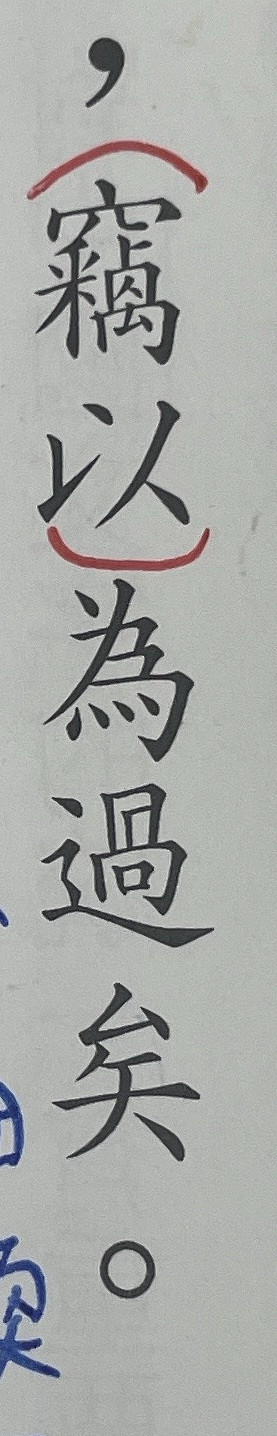 ，(竊以)為過矣。